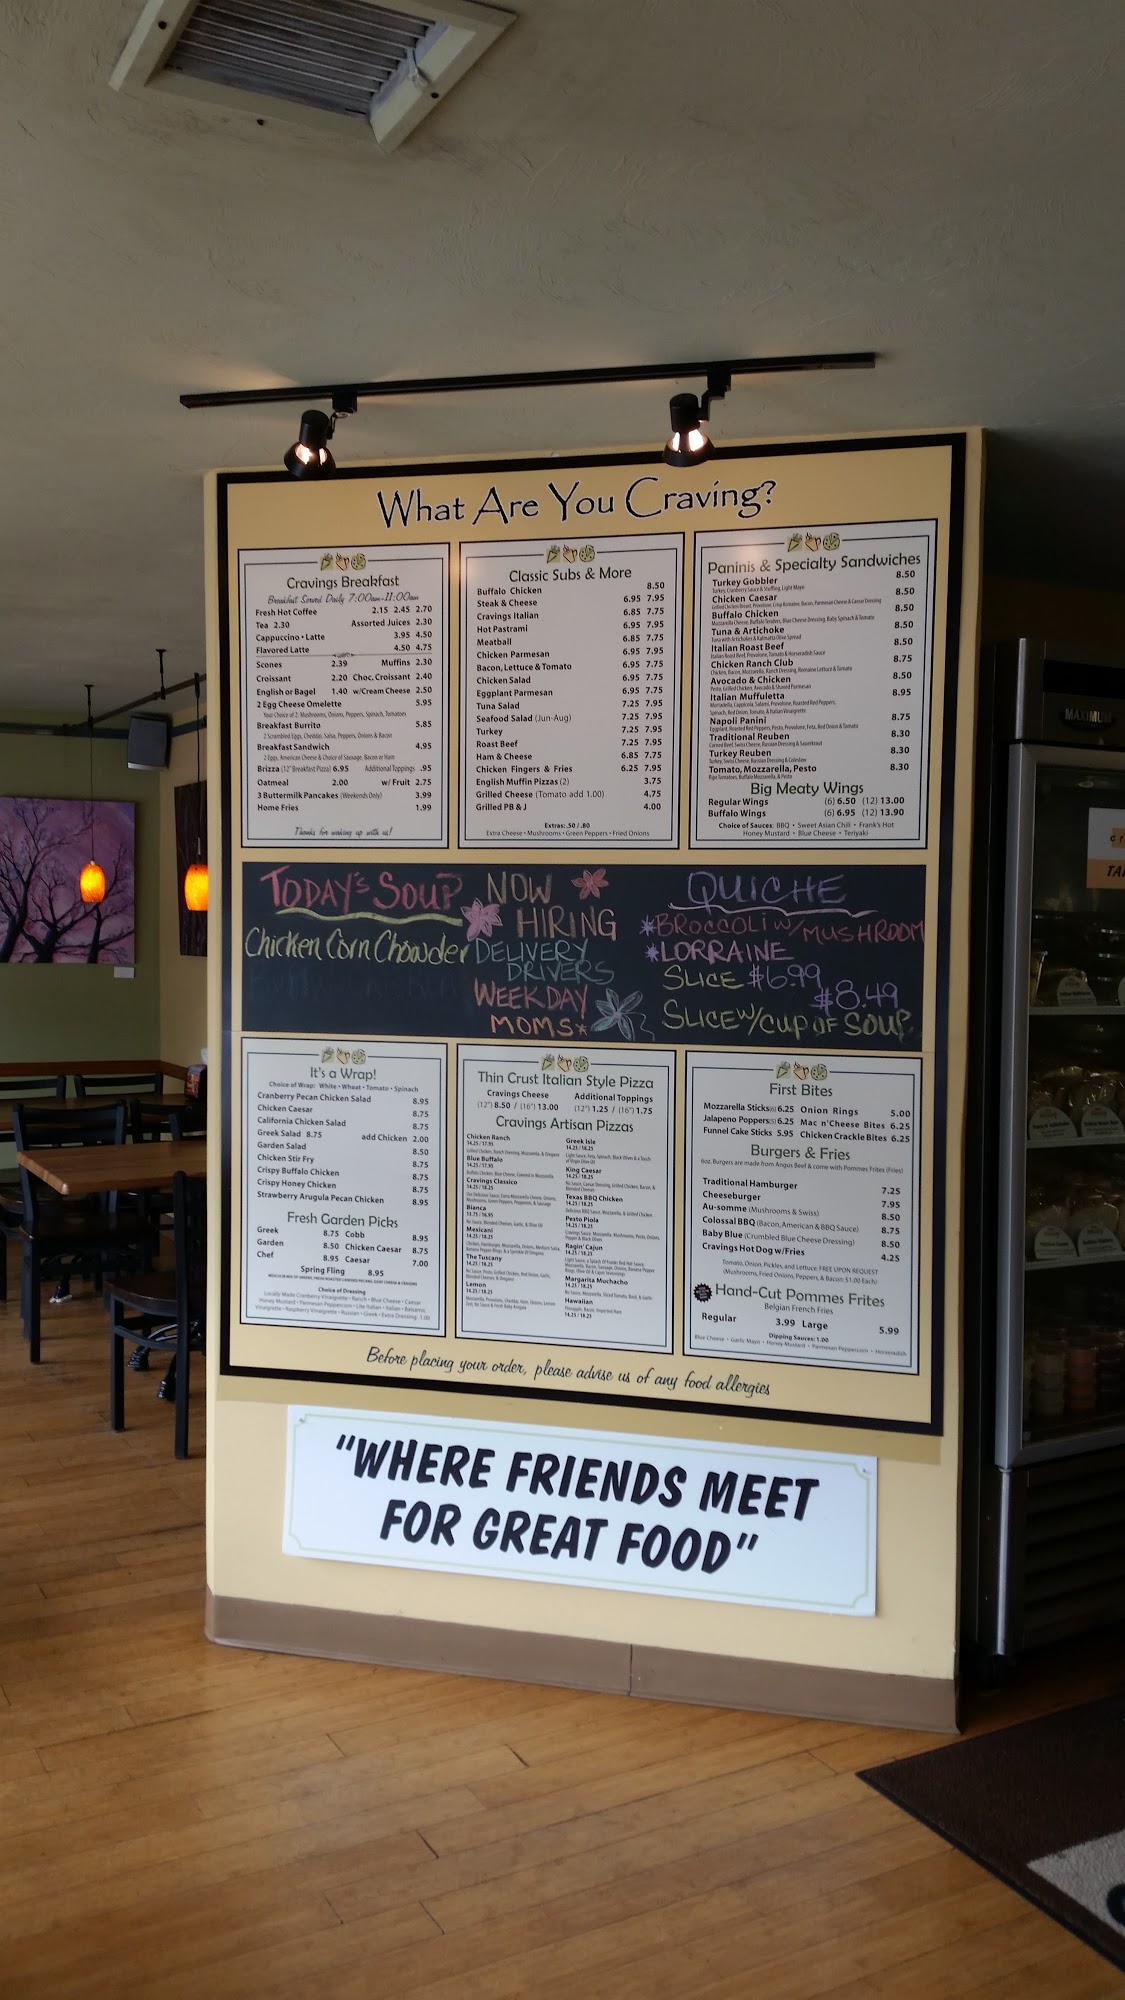 What Are You Craving?
Cravings Breakfast
Breakfast Served Daily 7:00am-11:00am
Fresh Hot Coffee 2.15 2.45 2.70
Tea 2.30 Assorted Juices 2.30
Cappuccino • Latte 3.95 4.50
Flavored Latte 4.50 4.75
Scones 2.39 Muffins 2.30
Croissant 2.20 Choc. Croissant 2.40
English or Bagel 1.40 w/Cream Cheese 2.50
2 Egg Cheese Omelette 5.95
Your Choice of 2: Mushrooms, Onions, Peppers, Spinach, Tomatoes
Breakfast Burrito 5.85
2 Scrambled Eggs, Cheddar, Salsa, Peppers, Onions & Bacon
Breakfast Sandwich 4.95
2 Eggs, American Cheese & Choice of Sausage, Bacon or Ham
Brizza (12" Breakfast Pizza) 6.95 Additional Toppings .95
Oatmeal 2.00 w/ Fruit 2.75
3 Buttermilk Pancakes (Weekends Only) 3.99
Home Fries 1.99
Thanks for waking up with us!
Classic Subs & More
Buffalo Chicken 8.50
Steak & Cheese 6.95 7.95
Cravings Italian 6.85 7.75
Hot Pastrami 6.95 7.95
Meatball 6.85 7.75
Chicken Parmesan 6.95 7.95
Bacon, Lettuce & Tomato 6.95 7.75
Chicken Salad 6.95 7.75
Eggplant Parmesan 6.95 7.75
Tuna Salad 7.25 7.95
Seafood Salad (Jun-Aug) 7.25 7.95
Turkey 7.25 7.95
Roast Beef 7.25 7.95
Ham & Cheese 6.85 7.75
Chicken Fingers & Fries 6.25 7.95
English Muffin Pizzas (2) 3.75
Grilled Cheese (Tomato add 1.00) 4.75
Grilled PB & J 4.00
Extras: .50 / .80
Extra Cheese • Mushrooms • Green Peppers • Fried Onions
Paninis & Specialty Sandwiches
Turkey Gobbler 8.50
Turkey, Cranberry Sauce & Stuffing, Light Mayo
Chicken Caesar 8.50
Grilled Chicken Breast, Provolone, Crisp Romaine, Bacon, Parmesan Cheese & Caesar Dressing
Buffalo Chicken 8.50
Mozzarella Cheese, Buffalo Tenders, Blue Cheese Dressing, Baby Spinach & Tomato
Tuna & Artichoke 8.50
Tuna with Artichokes & Kalmatta Olive Spread
Italian Roast Beef 8.50
Italian Roast Beef, Provolone, Tomato & Horseradish Sauce
Chicken Ranch Club 8.75
Chicken, Bacon, Mozzarella, Ranch Dressing, Romaine Lettuce & Tomato
Avocado & Chicken 8.50
Pesto, Grilled Chicken, Avocado & Shaved Parmesan
Italian Muffuletta 8.95
Mortadella, Cappicola, Salami, Provolone, Roasted Red Peppers,
Spinach, Red Onion, Tomato, & Italian Vinaigrette
Napoli Panini 8.75
Eggplant, Roasted Red Peppers, Pesto, Provolone, Feta, Red Onion & Tomato
Traditional Reuben 8.30
Corned Beef, Swiss Cheese, Russian Dressing & Sauerkraut
Turkey Reuben 8.30
Turkey, Swiss Cheese, Russian Dressing & Coleslaw
Tomato, Mozzarella, Pesto 8.30
Ripe Tomatoes, Buffalo Mozzarella, & Pesto
Big Meaty Wings
Regular Wings (6) 6.50 (12) 13.00
Buffalo Wings (6) 6.95 (12) 13.90
Choice of Sauces: BBQ • Sweet Asian Chili • Frank's Hot
Honey Mustard • Blue Cheese • Teriyaki
TODAY'S SOUP
Chicken Corn Chowder
NOW
HIRING
DELIVERY
DRIVERS
WEEKDAY
MOMS
QUICHE
*BROCCOLI W/ MUSHROOM
*LORRAINE
SLICE $6.99
$8.49
SLICE W/ CUP OF SOUP
It's a Wrap!
Choice of Wrap: White • Wheat • Tomato • Spinach
Cranberry Pecan Chicken Salad 8.95
Chicken Caesar 8.75
California Chicken Salad 8.75
Greek Salad 8.75 add Chicken 2.00
Garden Salad 8.50
Chicken Stir Fry 8.75
Crispy Buffalo Chicken 8.75
Crispy Honey Chicken 8.75
Strawberry Arugula Pecan Chicken 8.95
Fresh Garden Picks
Greek 8.75 Cobb 8.95
Garden 8.50 Chicken Caesar 8.75
Chef 8.95 Caesar 7.00
Spring Fling 8.95
Choice of Dressing
Locally Made Cranberry Vinaigrette • Ranch • Blue Cheese • Caesar
Honey Mustard • Parmesan Peppercorn • Lite Italian • Italian • Balsamic
Vinaigrette • Raspberry Vinaigrette • Russian • Greek • Extra Dressing: 1.00
Thin Crust Italian Style Pizza
Cravings Cheese Additional Toppings
(12") 8.50 / (16") 13.00 (12") 1.25 / (16") 1.75
Cravings Artisan Pizzas
Chicken Ranch
14.25 / 17.95
Grilled Chicken, Ranch Dressing, Mozzarella, & Oregano
Blue Buffalo
14.25 / 17.95
Cravings Classico
14.25 / 18.25
Bianca
13.75 / 16.95
Mexicani
14.25 / 18.25
The Tuscany
14.25 / 18.25
Lemon
14.25 / 18.25
Greek Isle
14.25 / 18.25
King Caesar
14.25 / 18.25
Texas BBQ Chicken
14.25 / 18.25
Pesto Piola
14.25 / 18.25
Ragin' Cajun
14.25 / 18.25
Margarita Muchacho
14.25 / 18.25
Hawaiian
Pineapple, Bacon, Imported Ham
14.25 / 18.25
First Bites
Mozzarella Sticks(6) 6.25 Onion Rings 5.00
Jalapeno Poppers 6.25 Mac n' Cheese Bites 6.25
Funnel Cake Sticks 5.95 Chicken Crackle Bites 6.25
Burgers & Fries
6oz. Burgers are made from Angus Beef & come with Pommes Frites (Fries)
Traditional Hamburger 7.25
Cheeseburger 7.95
Au-somme (Mushrooms & Swiss) 8.50
Colossal BBQ (Bacon, American & BBQ Sauce) 8.75
Baby Blue (Crumbled Blue Cheese Dressing) 8.50
Cravings Hot Dog w/Fries 4.25
Tomato, Onion, Pickles, and Lettuce: FREE UPON REQUEST
(Mushrooms, Fried Onions, Peppers, & Bacon: $1.00 Each)
Hand-Cut Pommes Frites
Belgian French Fries
Regular 3.99 Large 5.99
Dipping Sauces: 1.00
Blue Cheese • Garlic Mayo • Honey Mustard • Parmesan Peppercorn • Horseradish
Before placing your order, please advise us of any food allergies
"WHERE FRIENDS MEET
FOR GREAT FOOD"
MAXIMUM